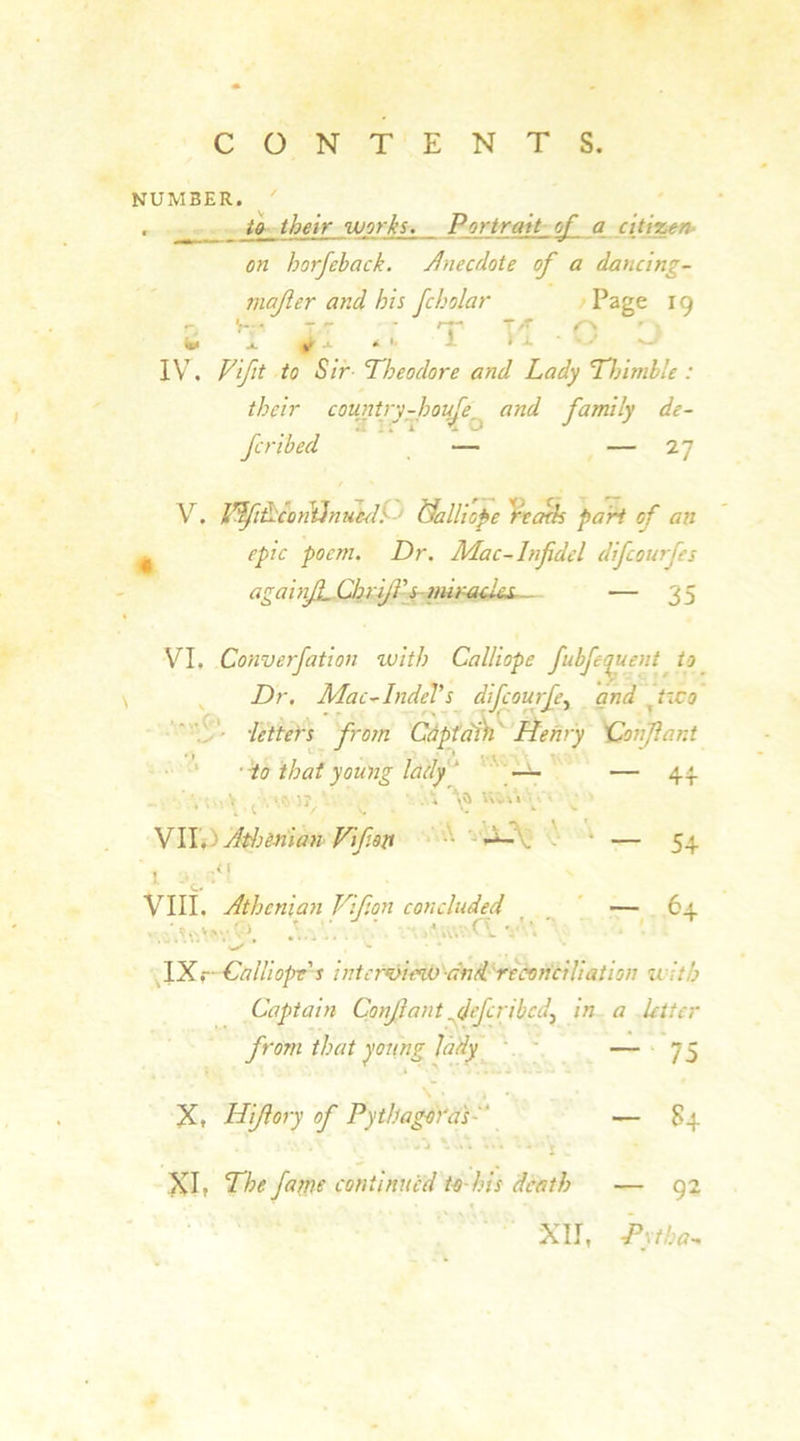 CONTENTS.
NUMBER.
to their works. Portrait of a citizen
on horſeback. Anecdote of a dancing-
maſter and his ſcholar Page 19
IV. Viſit to Sir Theodore and Lady Thimble :
their country-houſe and family de-
ſcribed — — 27
V. Viſit continued. Calliope reads part of an
epic poem. Dr. Mac-Infidel diſcourſes
againſt Chriſt's miracles — 35
VI. Converſation with Calliope ſubſequent to
Dr. Mac-Indel's diſcourſe, and two
letters from Captain Henry Conſtant
to that young lady — — 44
VII. Athenian Viſion — — 54
VIII. Athenian Viſion concluded — 64
IX. Calliope's interview and reconciliation with
Captain Conſtant deſcribed, in a letter
from that young lady — 75
X. Hiſtory of Pythagoras — 84
XI. The ſame continued to his death — 92
XII. Pytha-